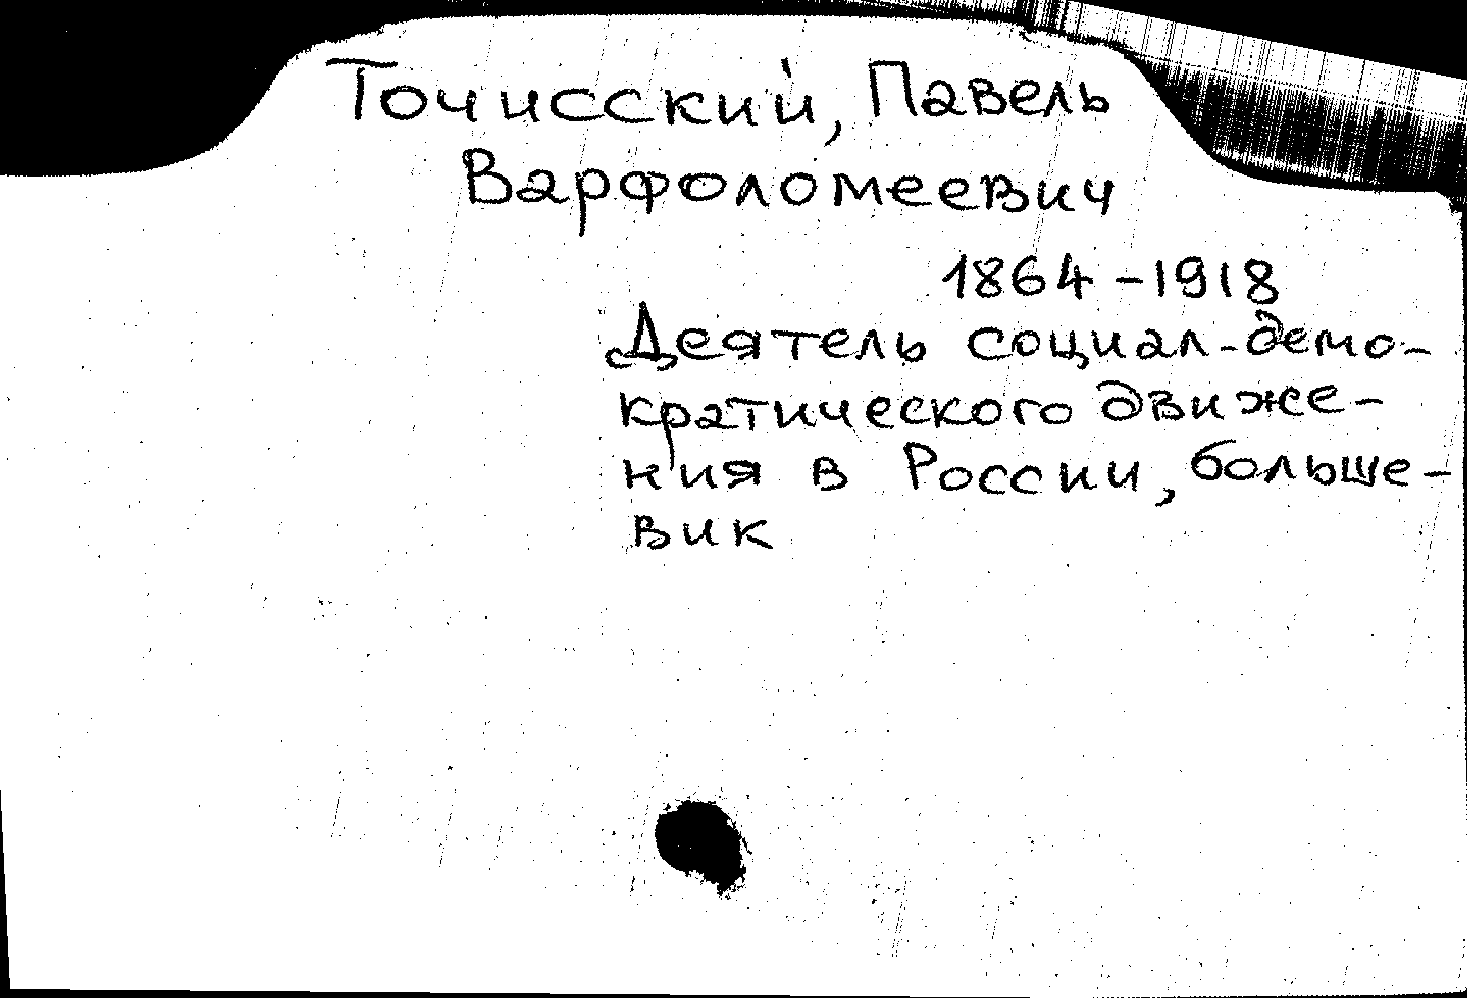 Точисский, Павель
Варфоломеевич
1864-1918
Деятель социал-демо-
кратического движе-
ния в России, больше-
вик